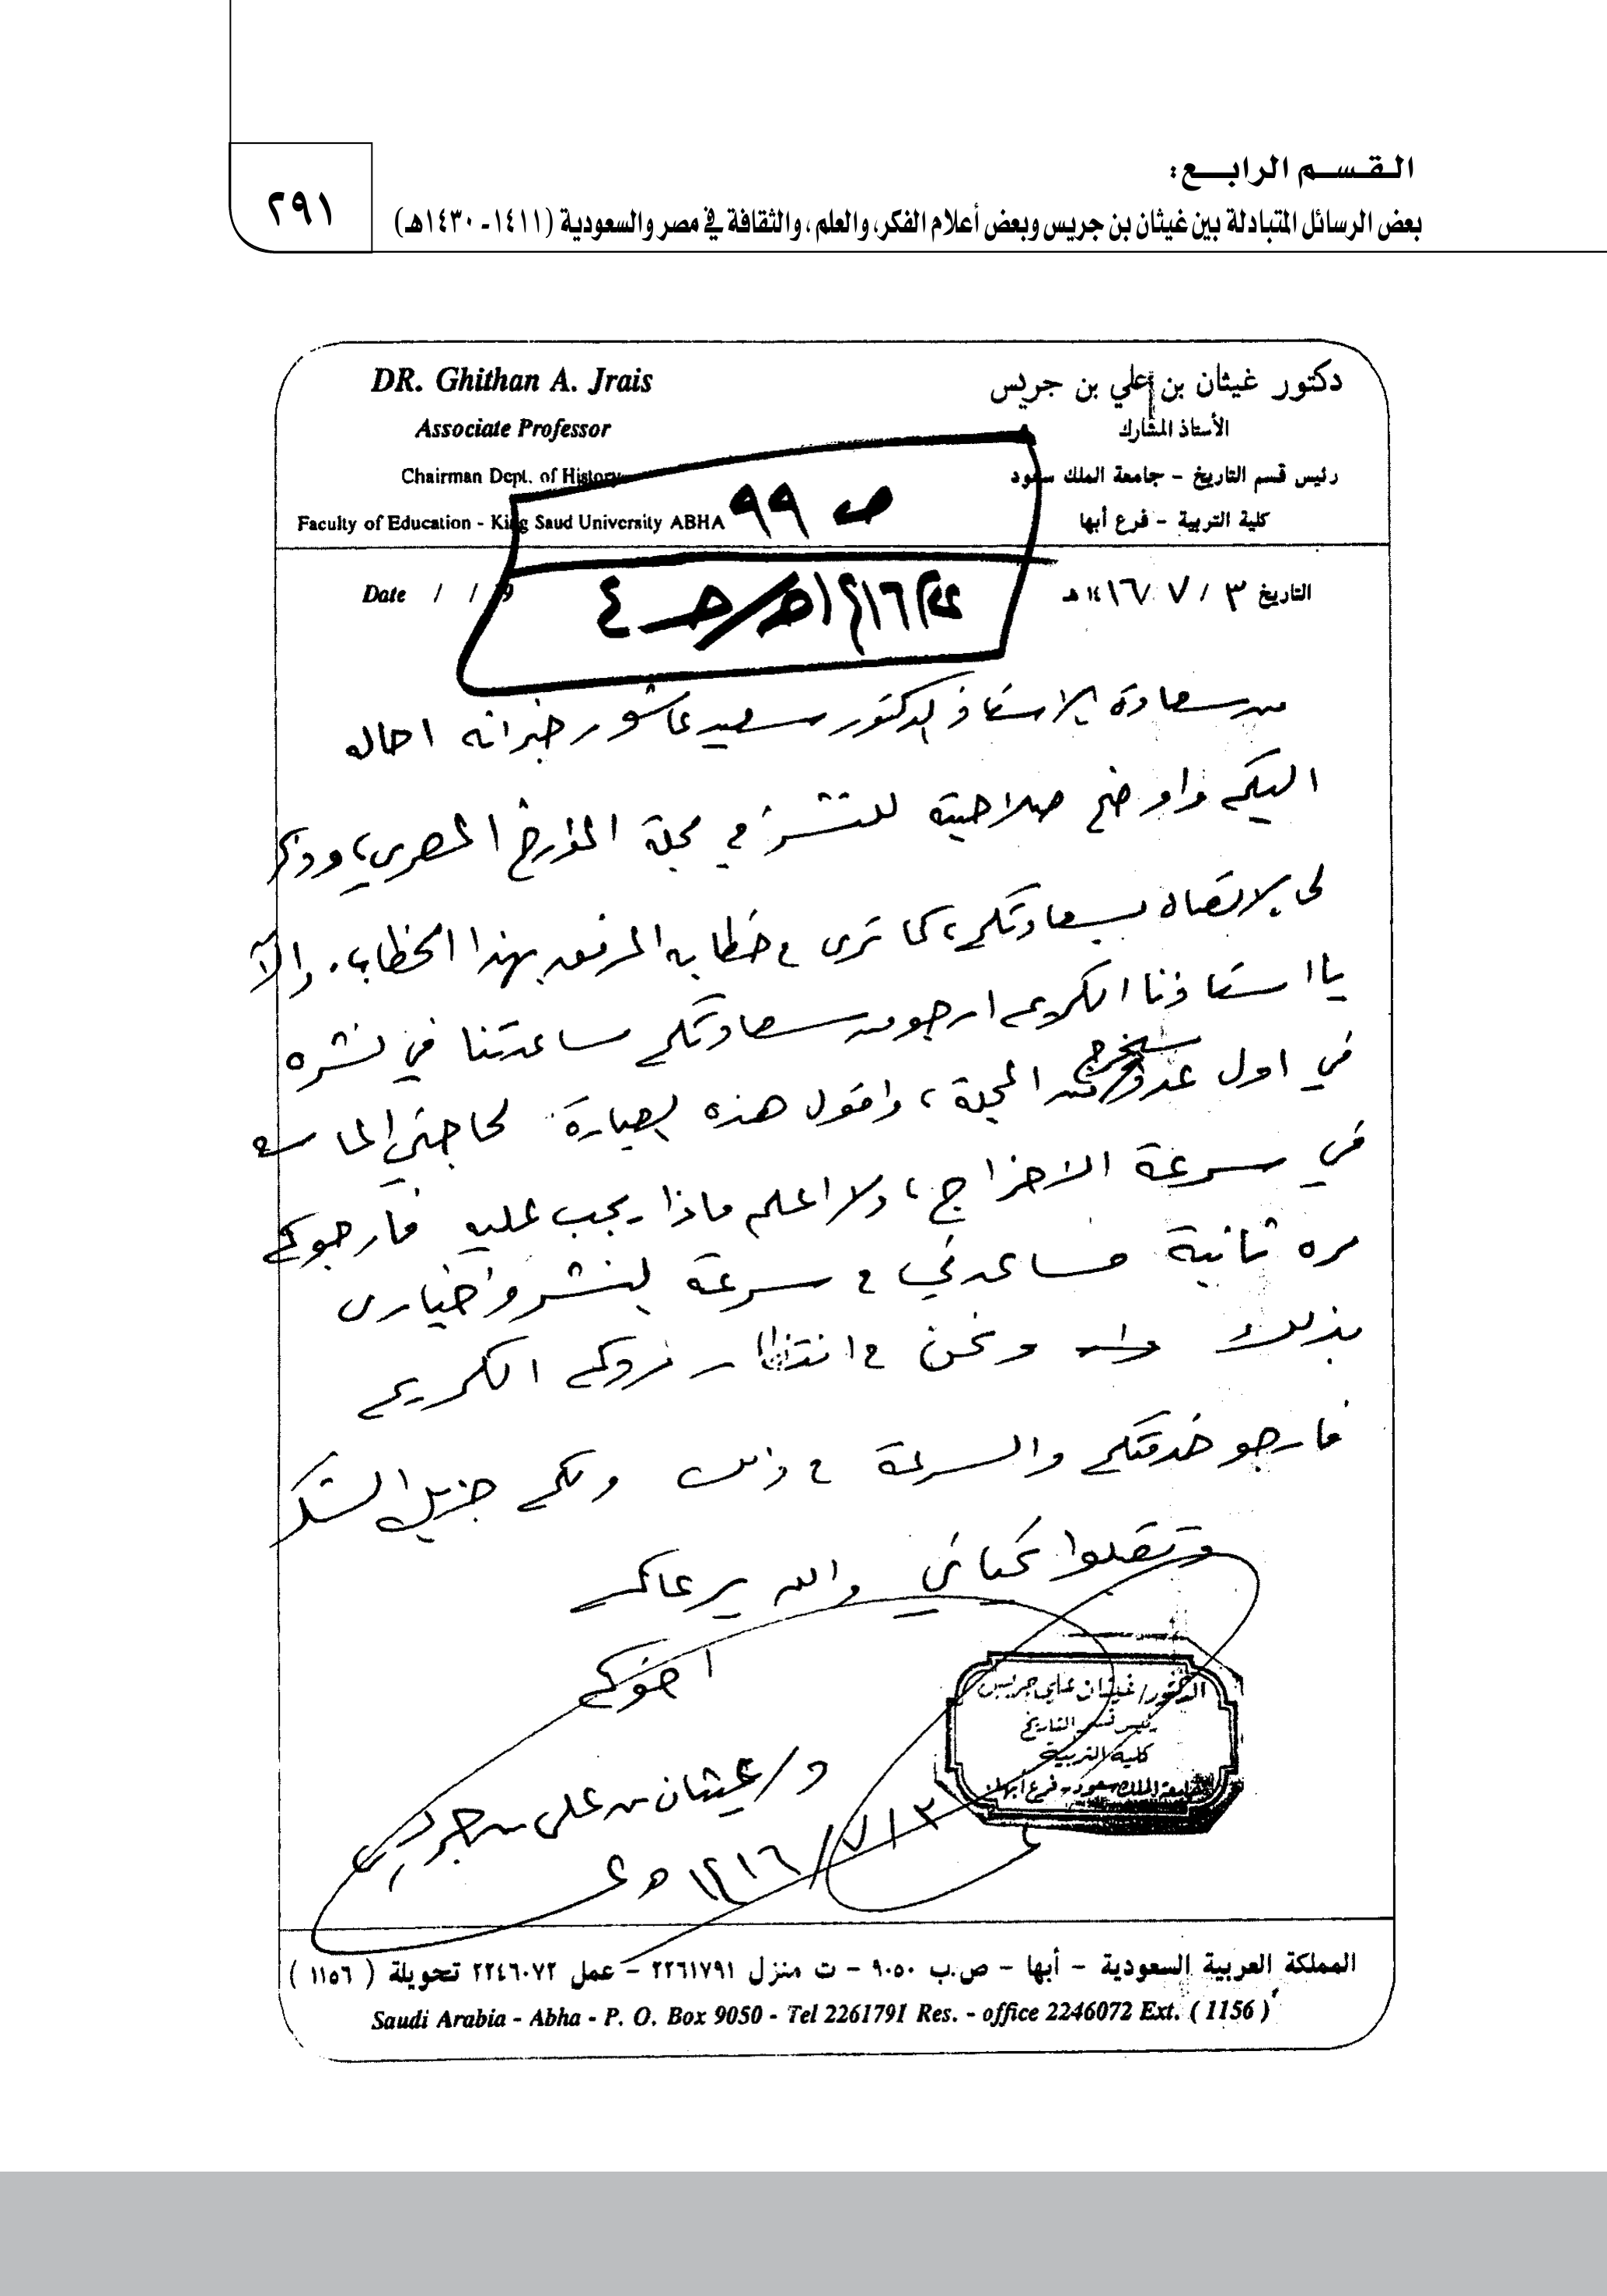 القسم الرابع:
بعض الرسائل المتبادلة بين غيثان بن جريس وبعض أعلام الفكر، والعلم، والثقافة في مصر والسعودية (١٤١١-١٤٣٠هـ)
٢٩١
DR. Ghithan A. Jrais
دكتور غيثان بن علي بن جريس
Associate Professor
الأستاذ المشارك
Chairman Dept. of History
رئيس قسم التاريخ - جامعة الملك سعود
Faculty of Education - King Saud University ABHA
كلية التربية - فرع أبها
ص ٩٩
Date / / 19
التاريخ ٣ / ٧ / ١٤١٦ هـ
من سعادة الاستاذ الدكتور سعيد عاشور خبرانه احاله
اليكم واوضح صلاحيته للنشر في مجلة المؤرخ المصري، وذكر
لي الاتصال بسعادتكم، كما ترى في خطابه المرفق بهذا الخطاب. والآن
يا استاذنا الكريم ارجو من سعادتكم مساعدتنا في نشره
في اول عدد سيخرج من المجلة، واقول هذه العبارة لحاجتي الماسة
في سرعة الاخراج، ولا اعلم ماذا يجب عليه فارجوكم
مره ثانية مساعدتي في سرعة النشر واخباري
بذلك ونحن في انتظار ردكم الكريم
فارجو خدمتكم والسرعة في ذلك ولكم جزيل الشكر
وتقبلوا تحياتي والله يرعاكم
اخوكم
د/غيثان بن علي بن جريس
٣/٧/١٤١٦هـ
الدكتور/غيثان علي جريس
رئيس قسم التاريخ
كلية التربية
جامعة الملك سعود - فرع أبها
المملكة العربية السعودية - أبها - ص.ب ٩٠٥٠ - ت منزل ٢٢٦١٧٩١ - عمل ٢٢٤٦٠٧٢ تحويلة ( ١١٥٦ )
Saudi Arabia - Abha - P. O. Box 9050 - Tel 2261791 Res. - office 2246072 Ext. ( 1156 )